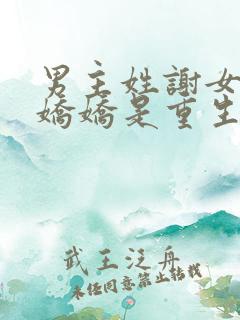 男主姓謝女
嬌嬌是重生
武王泛舟
未經同意禁止轉載